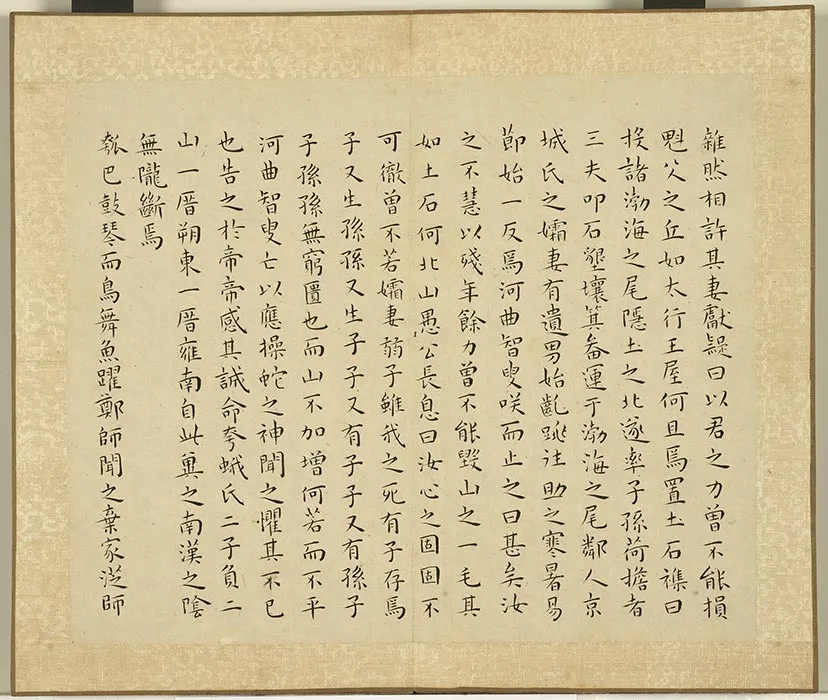 雜然相許其妻獻疑曰以君之力曾不能損
魁父之丘如大行王屋何且焉置土石襍曰
投諸渤海之尾隱土之北遂率子孫荷擔者
三夫叩石墾壤箕畚運于渤海之尾鄰人京
城氏之孀妻有遺男始齓跳往助之寒暑易
節始一反焉河曲智叟咲而止之曰甚矣汝
之不慧以殘年餘力曾不能毀山之一毛其
如土石何北山愚公長息曰汝心之固固不
可徹曾不若孀妻弱子雖我之死有子存焉
子又生孫孫又生子子又有子子又有孫子
子孫孫無窮匱也而山不加增何若而不平
河曲智叟亡以應操蛇之神聞之懼其不已
也告之於帝帝感其誠命夸蛾氏二子負二
山一厝朔東一厝雍南自此冀之南漢之陰
無隴斷焉
瓠巴鼓琴而鳥舞魚躍鄭師聞之棄家從師